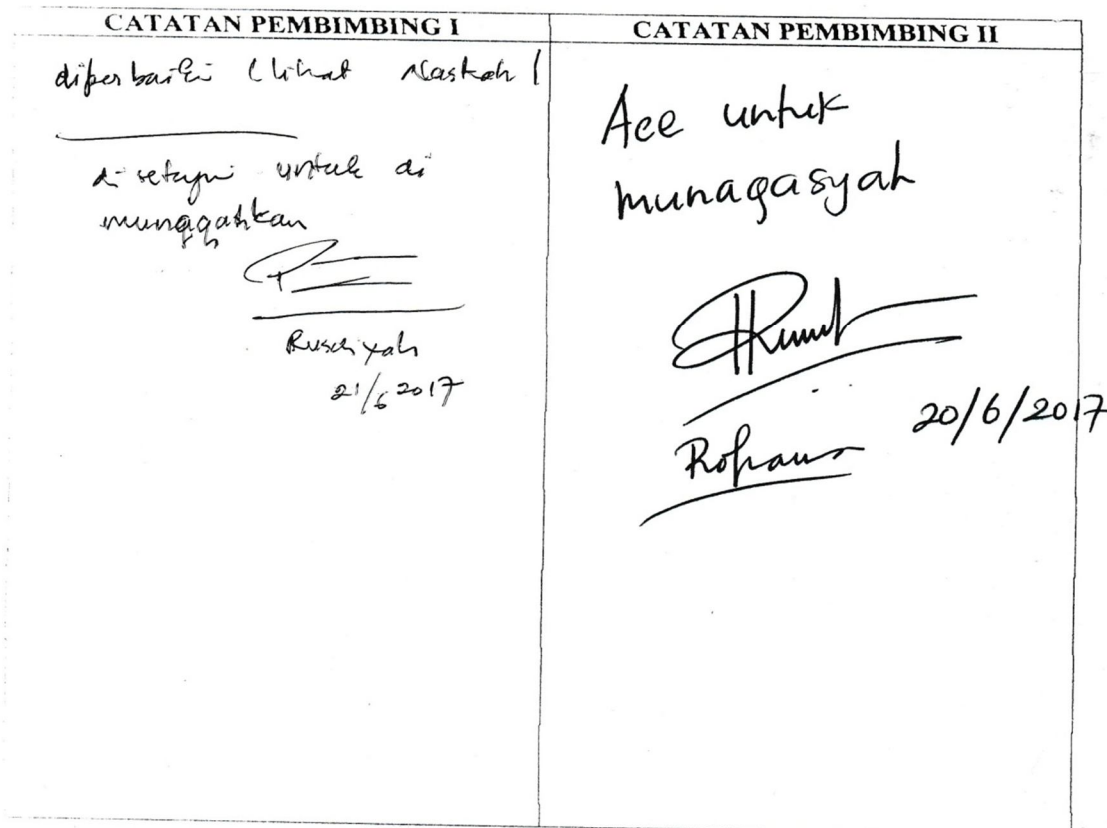 CATATAN PEMBIMBING I
diperbaiki (lihat Naskah)
di setujui untuk di
munaqasahkan
Rusdiyah
21/6 2017
CATATAN PEMBIMBING II
Acc untuk
munaqasyah
20/6/2017